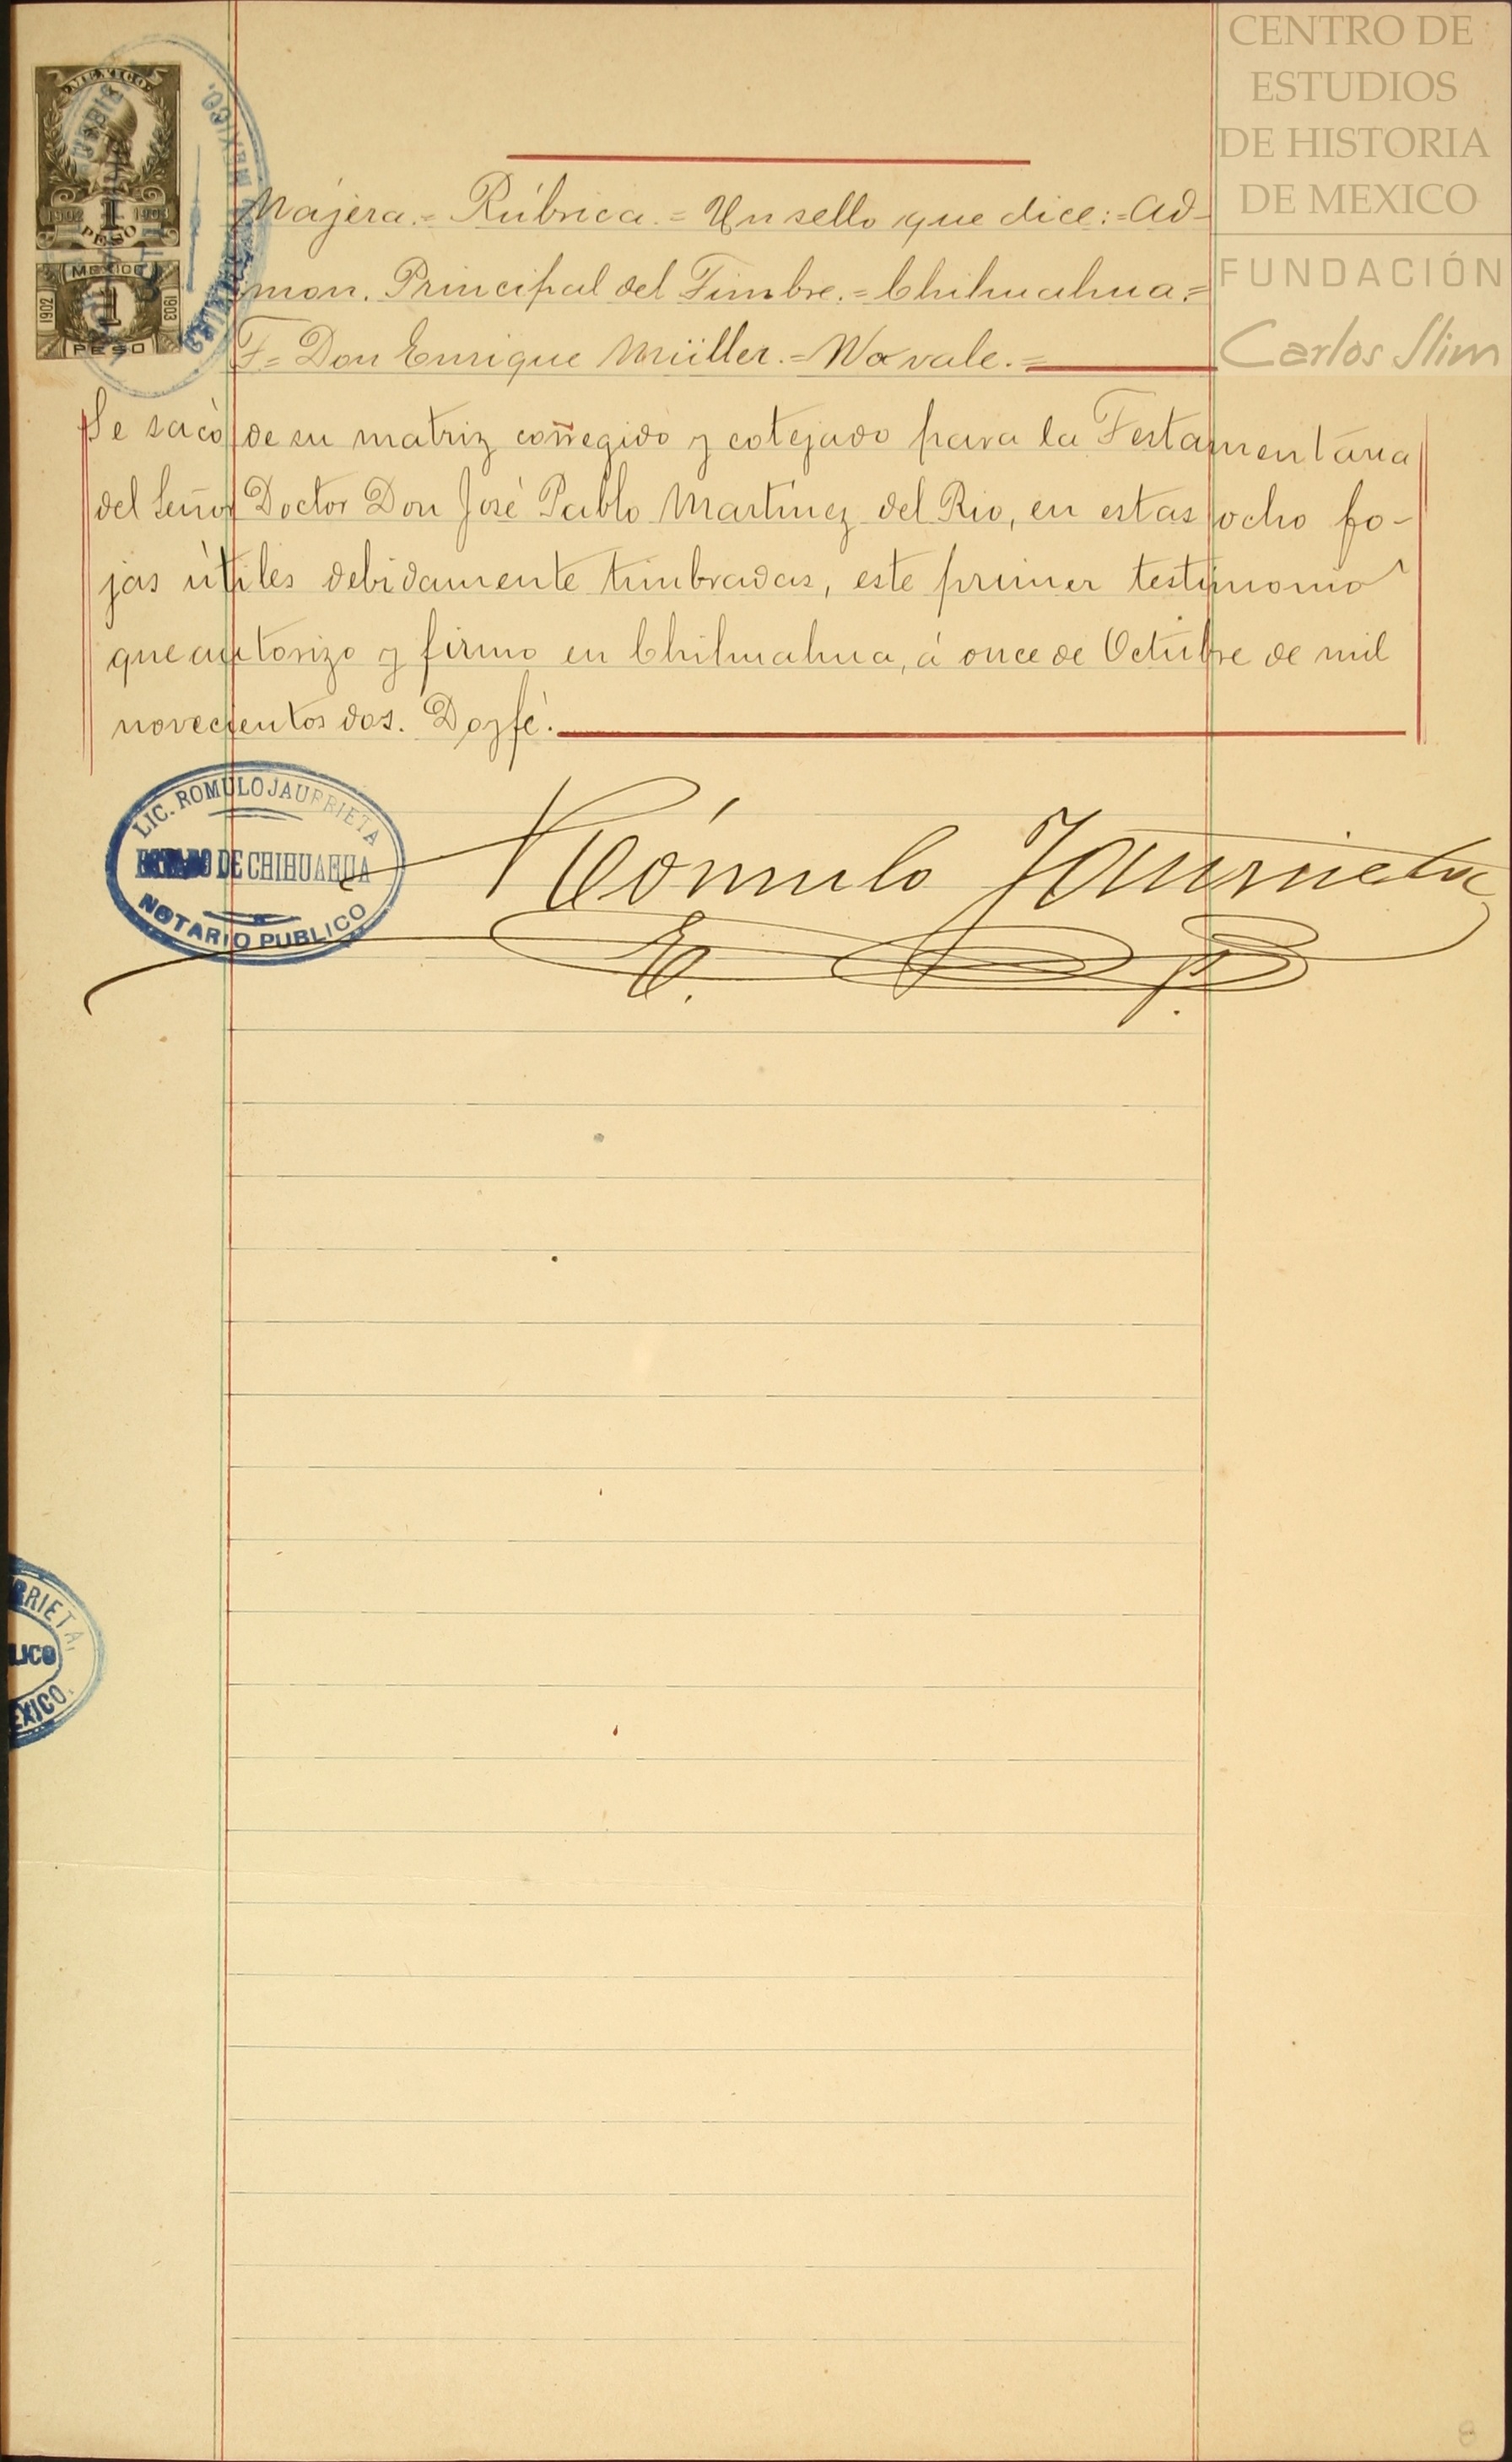 CENTRO DE
ESTUDIOS
DE HISTORIA
DE MEXICO
FUNDACIÓN
Carlos Slim
MEXICO
1902 1 1903
PESO
MEXICO
1902 1 1903
PESO
MEXICO.
Nájera.= Rúbrica.= Un sello que dice:= Ad-
mon. Principal del Timbre.= Chihuahua.=
F= Don Enrique Müller.= No vale.=
Se sacó de su matriz corregido y cotejado para la Testamentaria
del Señor Doctor Don José Pablo Martínez del Rio, en estas ocho fo-
jas útiles debidamente timbradas, este primer testimonio
que autorizo y firmo en Chihuahua, á once de Octubre de mil
novecientos dos. Doy fé.
LIC. ROMULO JAURRIETA
ESTADO DE CHIHUAHUA
NOTARIO PUBLICO
Rómulo Jaurrieta
E. P.
RRIETA,
LICO
EXICO.
8